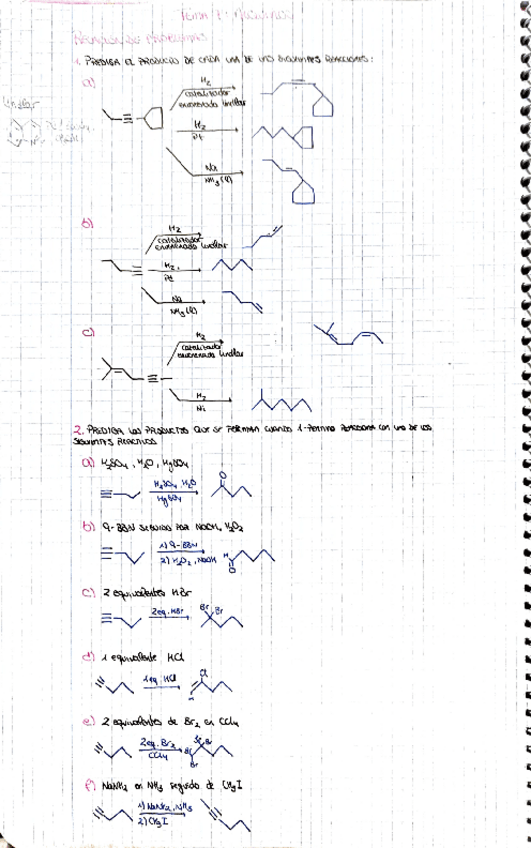 Tema 7: Alquinos
1. PREDIGA EL PRODUCTO DE CADA UNA DE LAS SIGUIENTES REACCIONES:
a)
H₂
catalizador
envenenado Lindlar
Lindlar
H₂
Pt
Na
NH₃(l)
b)
H₂
catalizador
envenenado Lindlar
H₂
Pt
Na
NH₃(l)
c)
H₂
catalizador
envenenado Lindlar
H₂
Ni
2. PREDIGA LOS PRODUCTOS QUE SE FORMAN CUANDO 1-PENTINO REACCIONA CON UNO DE LOS
SIGUIENTES REACTIVOS
a) H₂SO₄, H₂O, HgSO₄
H₂SO₄, H₂O
HgSO₄
O
b) 9-BBN SEGUIDO POR NaOH, H₂O₂
1) 9-BBN
2) H₂O₂, NaOH
H
O
c) 2 equivalentes HBr
2eq. HBr
Br Br
d) 1 equivalente HCl
1eq. HCl
Cl
H
e) 2 equivalentes de Br₂ en CCl₄
2eq. Br₂
CCl₄
Br Br
Br
Br
f) NaNH₂ en NH₃ seguido de CH₃I
1) NaNH₂, NH₃
2) CH₃I